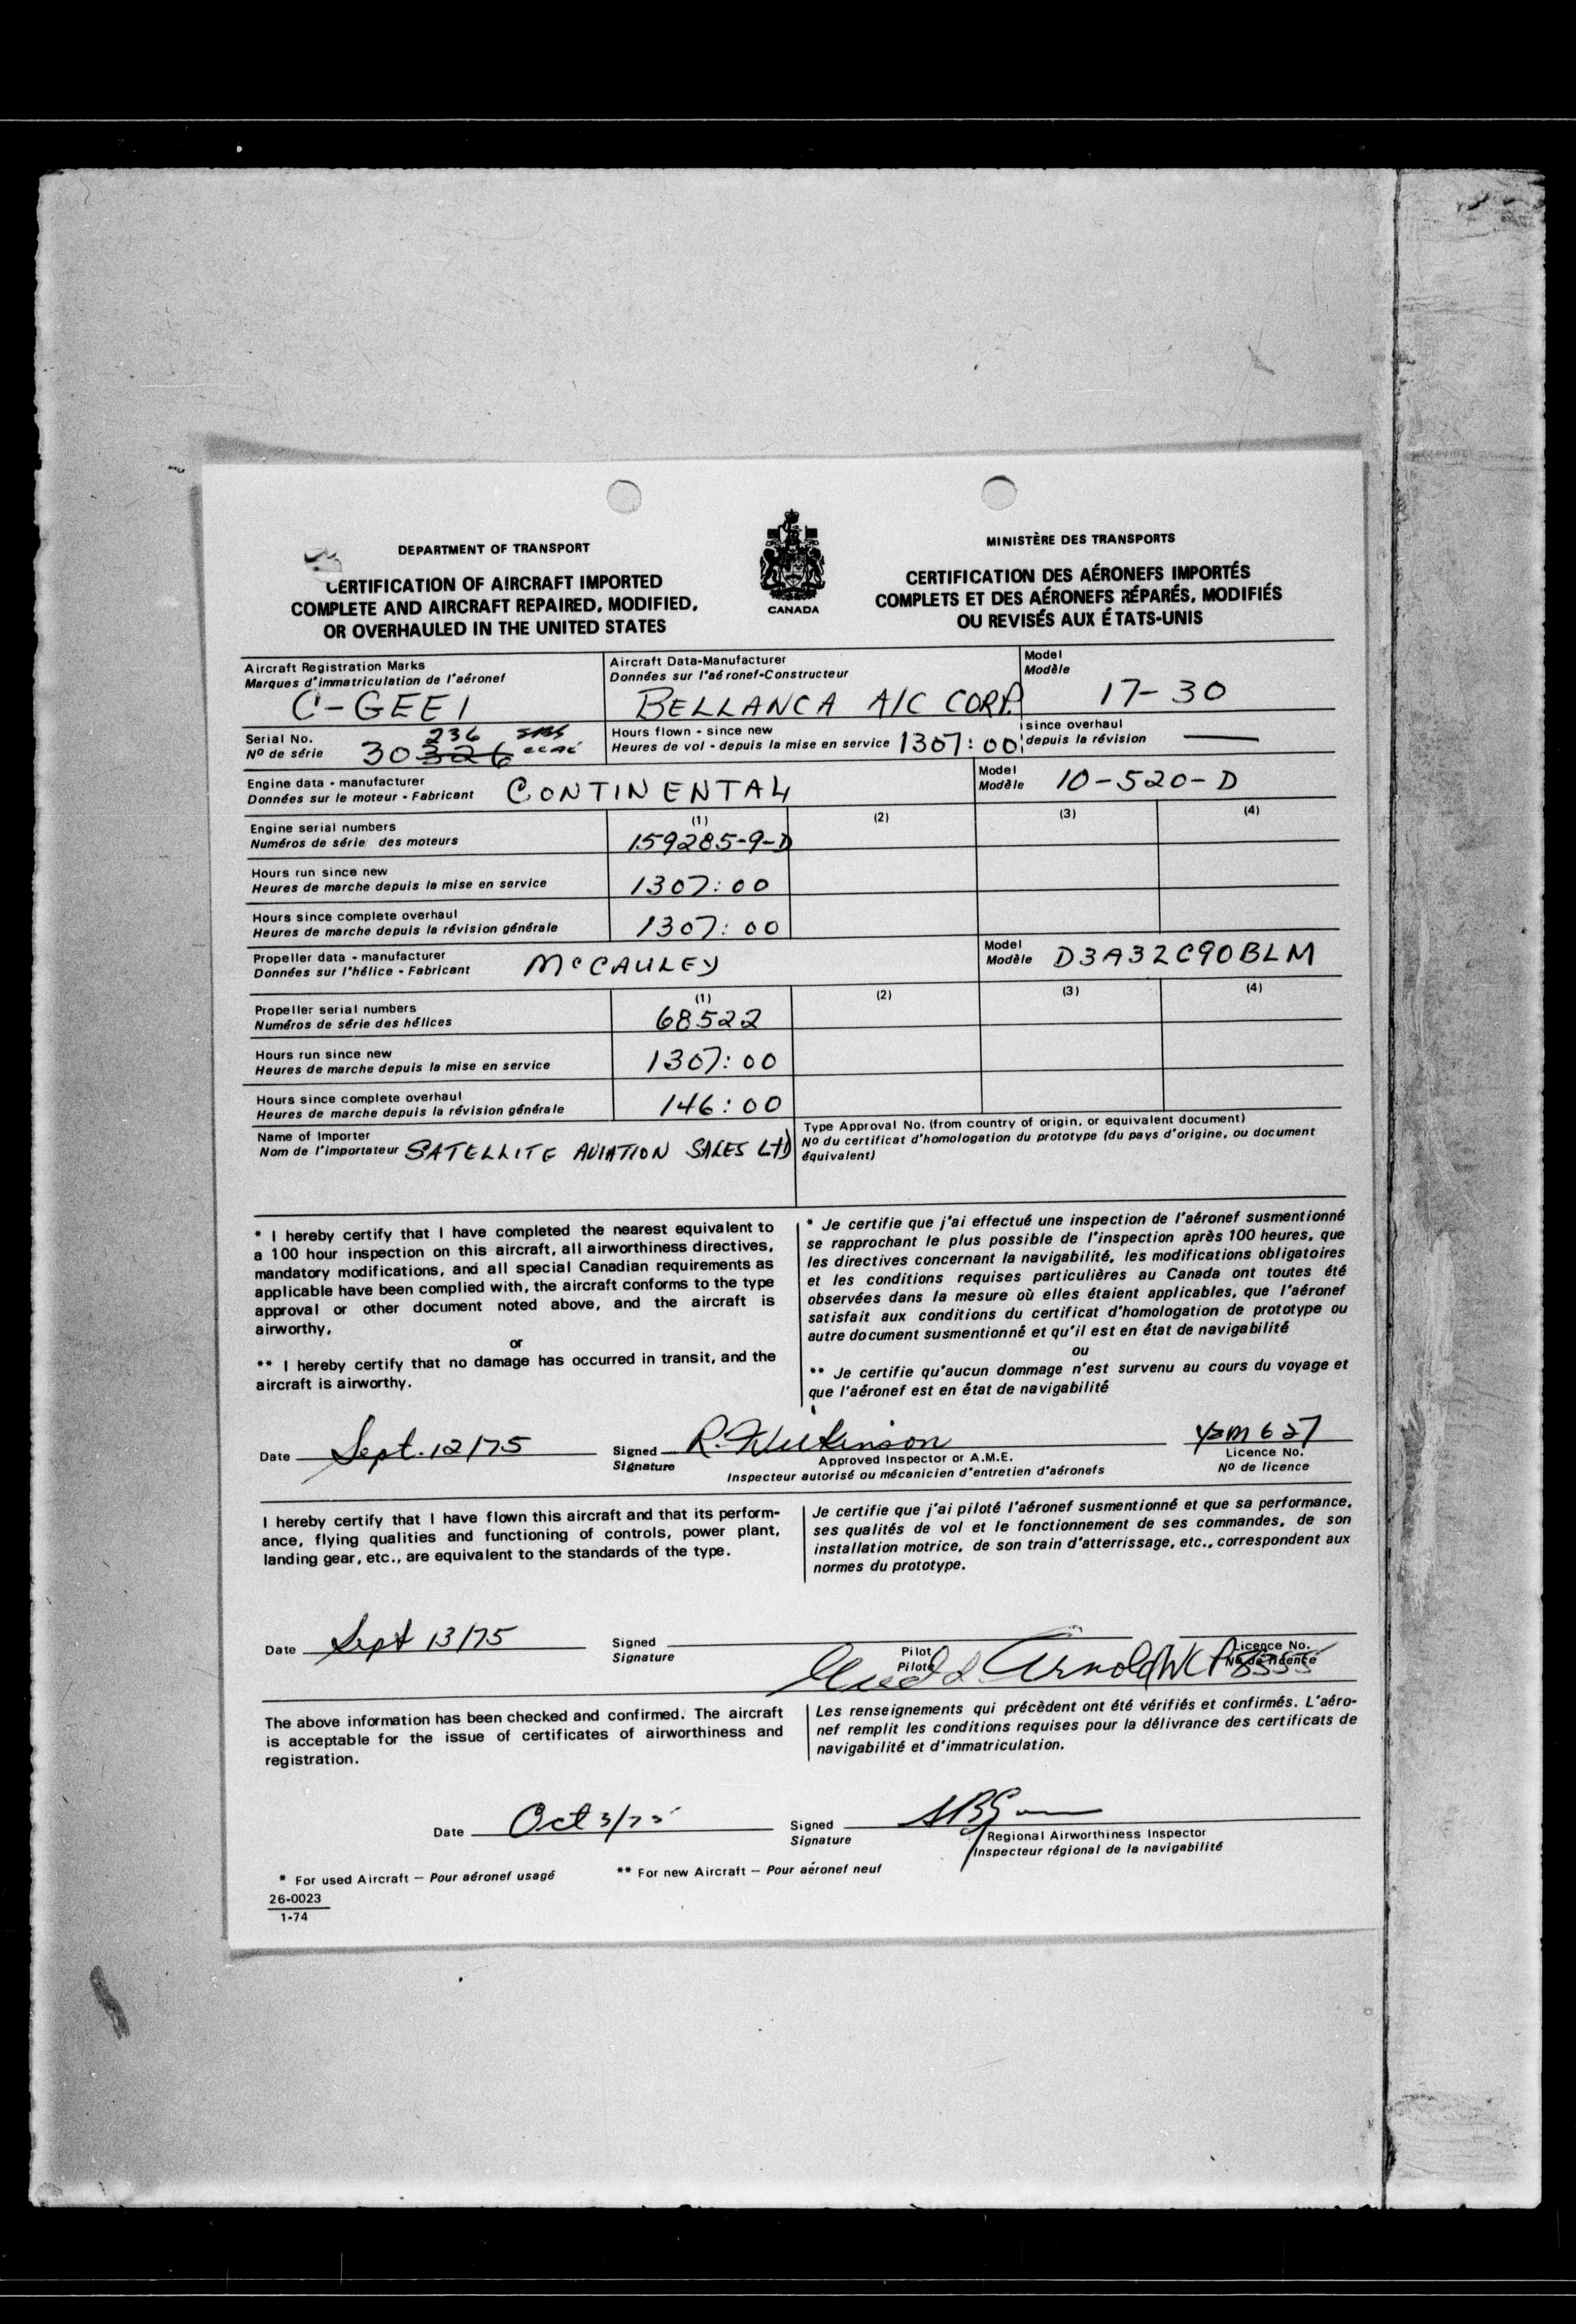 DEPARTMENT OF TRANSPORT
CERTIFICATION OF AIRCRAFT IMPORTED
COMPLETE AND AIRCRAFT REPAIRED, MODIFIED,
OR OVERHAULED IN THE UNITED STATES
CANADA
MINISTÈRE DES TRANSPORTS
CERTIFICATION DES AÉRONEFS IMPORTÉS
COMPLETS ET DES AÉRONEFS RÉPARÉS, MODIFIÉS
OU REVISÉS AUX ÉTATS-UNIS
Aircraft Registration Marks
Marques d'immatriculation de l'aéronef
C-GEEI
Aircraft Data-Manufacturer
Données sur l'aéronef-Constructeur
BELLANCA A/C CORP.
Model
Modèle
17-30
Serial No.
Nº de série
236
30 326
Hours flown - since new
Heures de vol - depuis la mise en service
1307:00
since overhaul
depuis la révision
Engine data - manufacturer
Données sur le moteur - Fabricant
CONTINENTAL
Model
Modèle
10-520-D
Engine serial numbers
Numéros de série des moteurs
(1)
159285-9-D
(2)
(3)
(4)
Hours run since new
Heures de marche depuis la mise en service
1307:00
Hours since complete overhaul
Heures de marche depuis la révision générale
1307:00
Propeller data - manufacturer
Données sur l'hélice - Fabricant
McCAULEY
Model
Modèle
D3A32C90BLM
Propeller serial numbers
Numéros de série des hélices
(1)
68522
(2)
(3)
(4)
Hours run since new
Heures de marche depuis la mise en service
1307:00
Hours since complete overhaul
Heures de marche depuis la révision générale
146:00
Name of Importer
Nom de l'importateur
SATELLITE AVIATION SALES LTD
Type Approval No. (from country of origin, or equivalent document)
No du certificat d'homologation du prototype (du pays d'origine, ou document
équivalent)
* I hereby certify that I have completed the nearest equivalent to
a 100 hour inspection on this aircraft, all airworthiness directives,
mandatory modifications, and all special Canadian requirements as
applicable have been complied with, the aircraft conforms to the type
approval or other document noted above, and the aircraft is
airworthy,
or
** I hereby certify that no damage has occurred in transit, and the
aircraft is airworthy.
* Je certifie que j'ai effectué une inspection de l'aéronef susmentionné
se rapprochant le plus possible de l'inspection après 100 heures, que
les directives concernant la navigabilité, les modifications obligatoires
et les conditions requises particulières au Canada ont toutes été
observées dans la mesure où elles étaient applicables, que l'aéronef
satisfait aux conditions du certificat d'homologation de prototype ou
autre document susmentionné et qu'il est en état de navigabilité
ou
** Je certifie qu'aucun dommage n'est survenu au cours du voyage et
que l'aéronef est en état de navigabilité
Date Sept. 12/75
Signed
Signature
R. Wilkinson
Approved Inspector or A.M.E.
Inspecteur autorisé ou mécanicien d'entretien d'aéronefs
627
Licence No.
Nº de licence
I hereby certify that I have flown this aircraft and that its perform-
ance, flying qualities and functioning of controls, power plant,
landing gear, etc., are equivalent to the standards of the type.
Je certifie que j'ai piloté l'aéronef susmentionné et que sa performance,
ses qualités de vol et le fonctionnement de ses commandes, de son
installation motrice, de son train d'atterrissage, etc., correspondent aux
normes du prototype.
Date Sept 13/75
Signed
Signature
Pilot
Pilote
Arnold
Licence No.
No de licence
The above information has been checked and confirmed. The aircraft
is acceptable for the issue of certificates of airworthiness and
registration.
Les renseignements qui précèdent ont été vérifiés et confirmés. L'aéro-
nef remplit les conditions requises pour la délivrance des certificats de
navigabilité et d'immatriculation.
Date Oct 3/75
Signed
Signature
Regional Airworthiness Inspector
Inspecteur régional de la navigabilité
* For used Aircraft — Pour aéronef usagé
** For new Aircraft — Pour aéronef neuf
26-0023
1-74